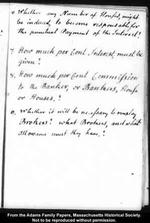 Whether any Number of Houses might
be induced, to become responsible for
the punctual Payment of the Interest?
7. How much per Cent, Interest, must be
given?
8. How much per Cent Commission
to the Banker, or Bankers, House
or Houses?
9. Whether it will be necessary to employ
Brokers? what Brokers, and what
allowance must they have?
From the Adams Family Papers, Massachusetts Historical Society.
Not to be reproduced without permission.